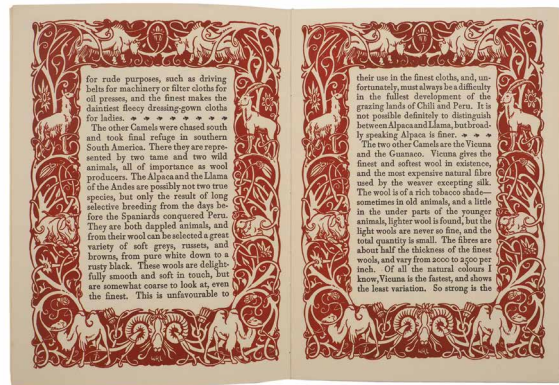 for rude purposes, such as driving
belts for machinery or filter cloths for
oil presses, and the finest makes the
daintiest fleecy dressing-gown cloths
for ladies.
The other Camels were chased south
and took final refuge in southern
South America. There they are repre-
sented by two tame and two wild
animals, all of importance as wool
producers. The Alpaca and the Llama
of the Andes are possibly not two true
species, but only the result of long
selective breeding from the days be-
fore the Spaniards conquered Peru.
They are both dappled animals, and
from their wool can be selected a great
variety of soft greys, russets, and
browns, from pure white down to a
rusty black. These wools are delight-
fully smooth and soft in touch, but
are somewhat coarse to look at, even
the finest. This is unfavourable to
their use in the finest cloths, and, un-
fortunately, must always be a difficulty
in the fullest development of the
grazing lands of Chili and Peru. It is
not possible definitely to distinguish
between Alpaca and Llama, but broad-
ly speaking Alpaca is finer.
The two other Camels are the Vicuna
and the Guanaco. Vicuna gives the
finest and softest wool in existence,
and the most expensive natural fibre
used by the weaver excepting silk.
The wool is of a rich tobacco shade—
sometimes in old animals, and a little
in the under parts of the younger
animals, lighter wool is found, but the
light wools are never so fine, and the
total quantity is small. The fibres are
about half the thickness of the finest
wools, and vary from 2000 to 2500 per
inch. Of all the natural colours I
know, Vicuna is the fastest, and shows
the least variation. So strong is the